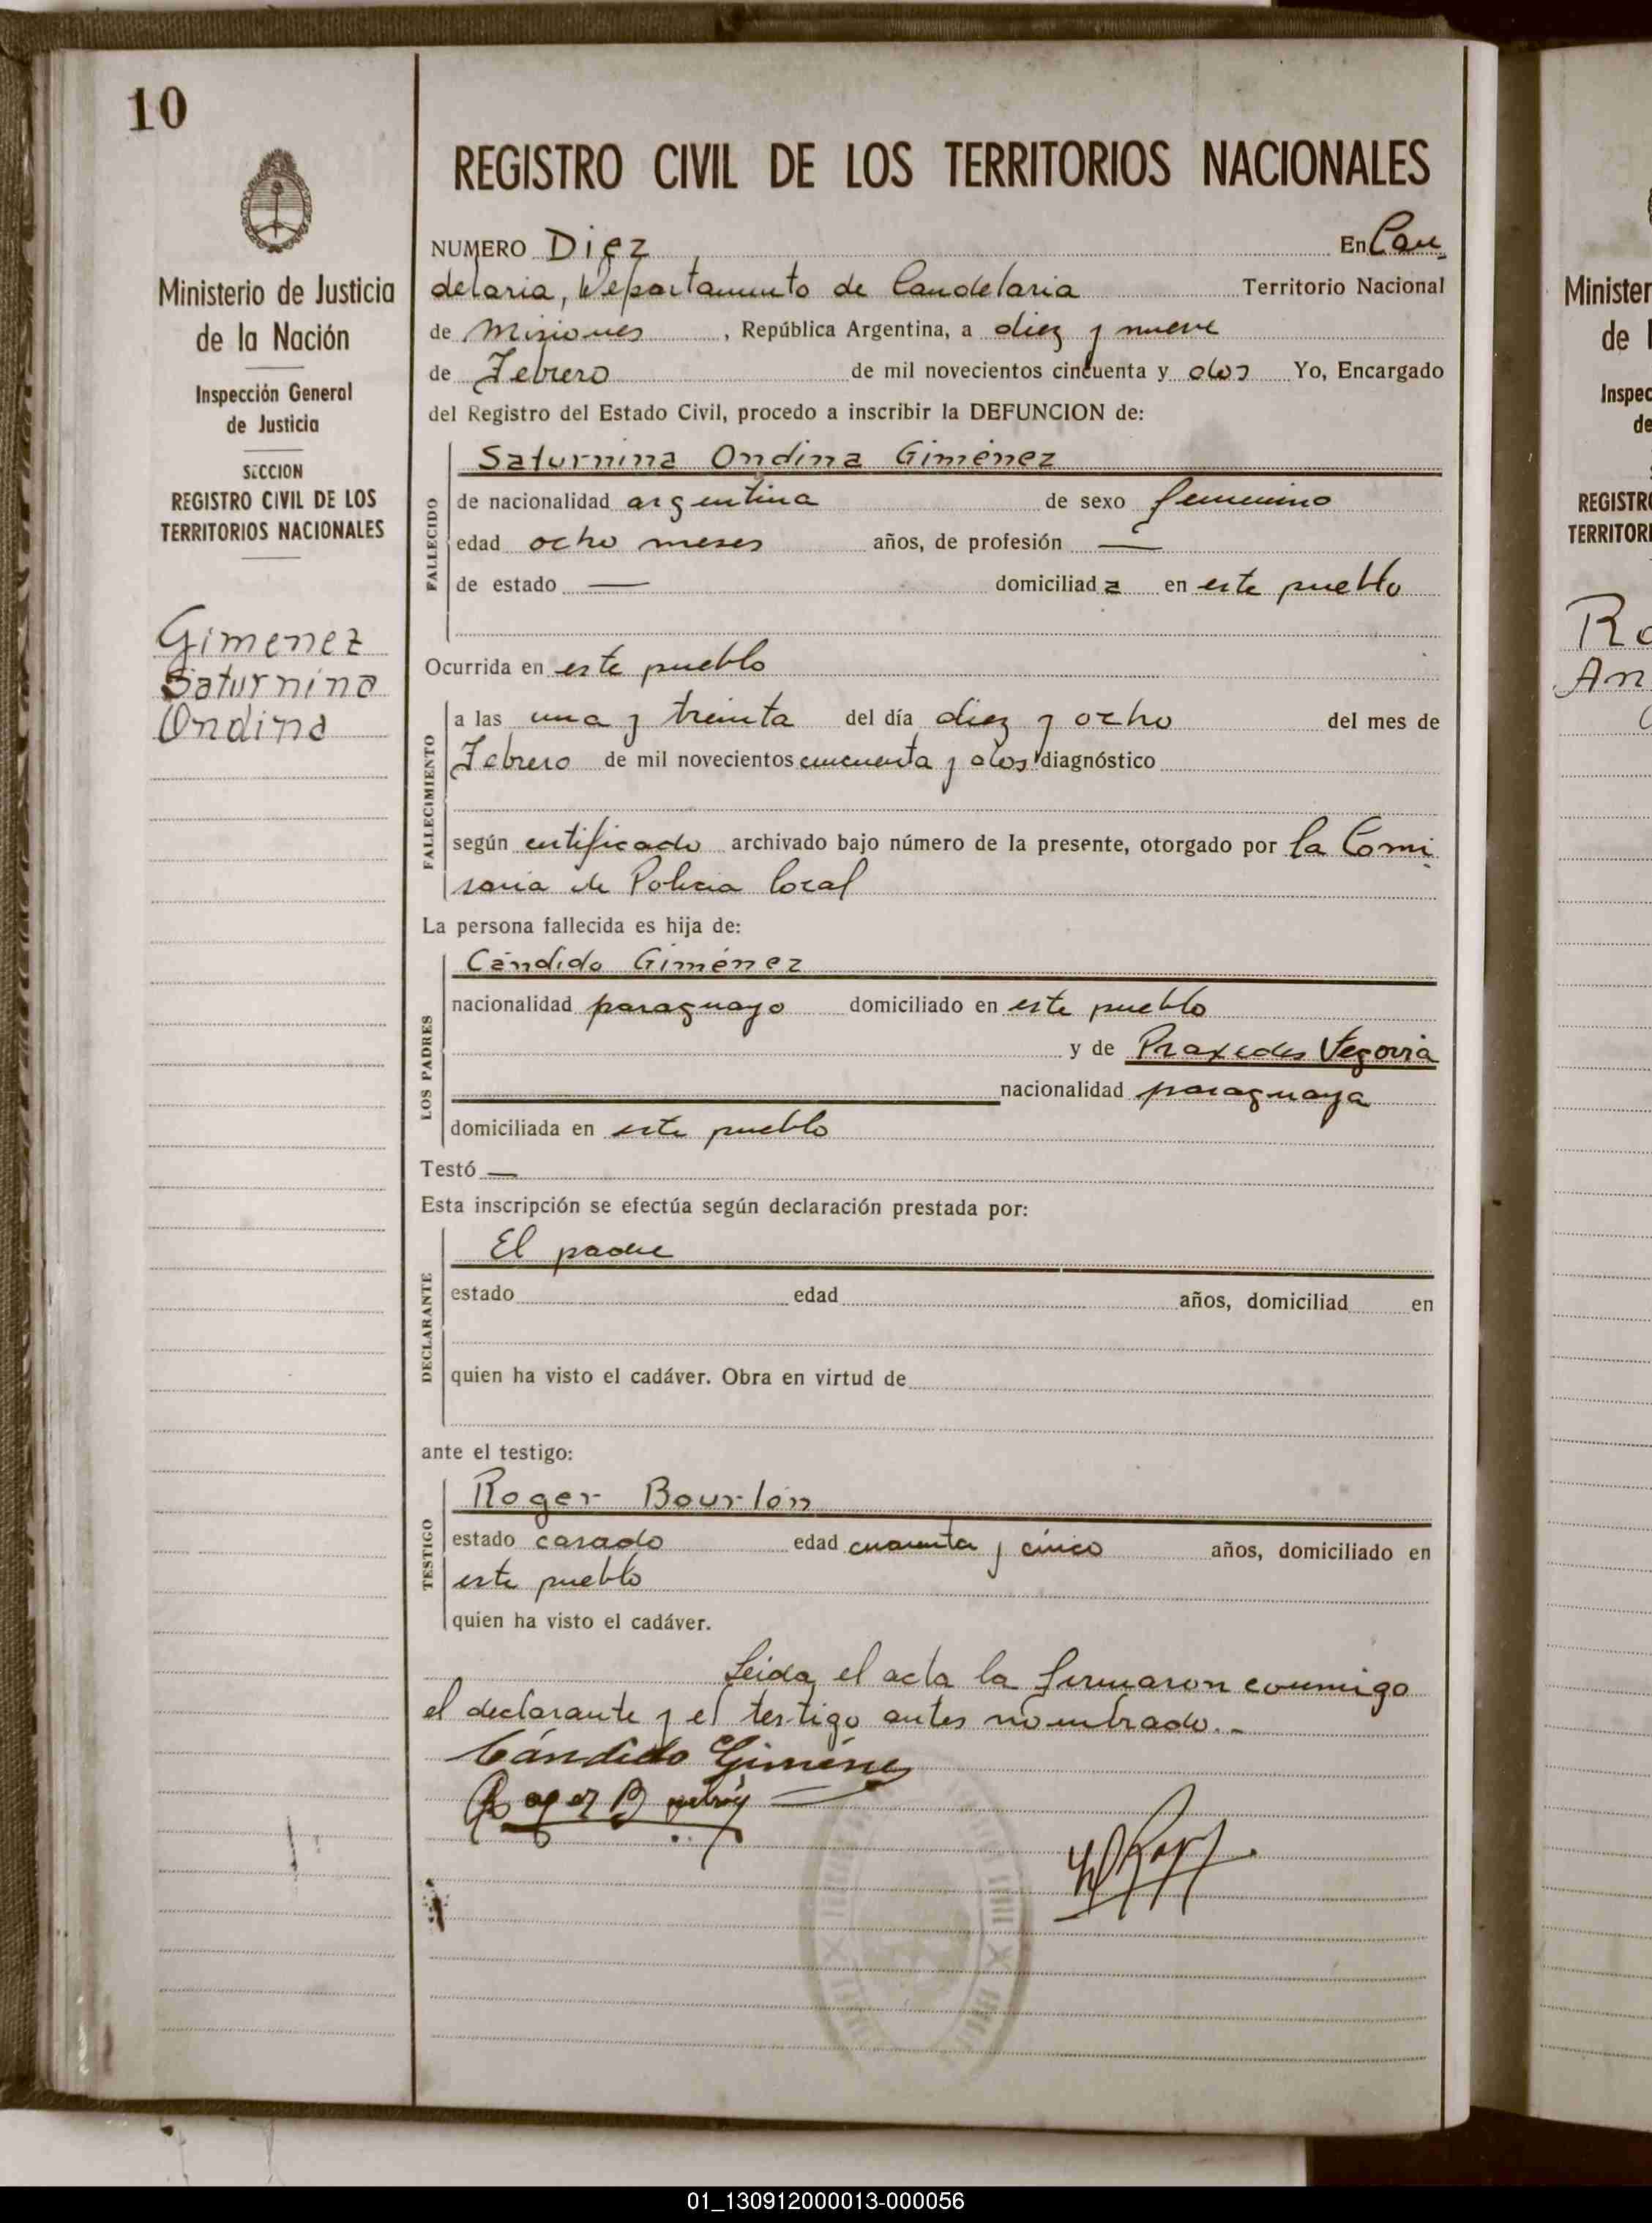 10
Ministerio de Justicia
de la Nación
Inspección General
de Justicia
SECCION
REGISTRO CIVIL DE LOS
TERRITORIOS NACIONALES
Gimenez
Saturnina
Ondina
REGISTRO CIVIL DE LOS TERRITORIOS NACIONALES
NUMERO Diez En Can
delaria, Departamento de Candelaria Territorio Nacional
de Misiones, República Argentina, a diez y nueve
de Febrero de mil novecientos cincuenta y dos Yo, Encargado
del Registro del Estado Civil, procedo a inscribir la DEFUNCION de:
FALLECIDO
Saturnina Ondina Giménez
de nacionalidad argentina de sexo femenino
edad ocho meses años, de profesión —
de estado — domiciliada en este pueblo
Ocurrida en este pueblo
FALLECIMIENTO
a las una y treinta del día diez y ocho del mes de
Febrero de mil novecientos cincuenta y dos diagnóstico
según certificado archivado bajo número de la presente, otorgado por la Comi
saria de Policia local
La persona fallecida es hija de:
LOS PADRES
Cándido Giménez
nacionalidad paraguayo domiciliado en este pueblo
y de Praxedes Segovia
nacionalidad paraguaya
domiciliada en este pueblo
Testó —
Esta inscripción se efectúa según declaración prestada por:
DECLARANTE
El padre
estado edad años, domiciliad en
quien ha visto el cadáver. Obra en virtud de
ante el testigo:
TESTIGO
Roger Bourlón
estado casado edad cuarenta y cinco años, domiciliado en
este pueblo
quien ha visto el cadáver.
Leida el acta la firmaron conmigo
el declarante y el testigo antes nombrado.-
Cándido Giménez
Roger
Minister
de
Inspec
de
REGISTR
TERRITOR
Ro
An
01_130912000013-000056